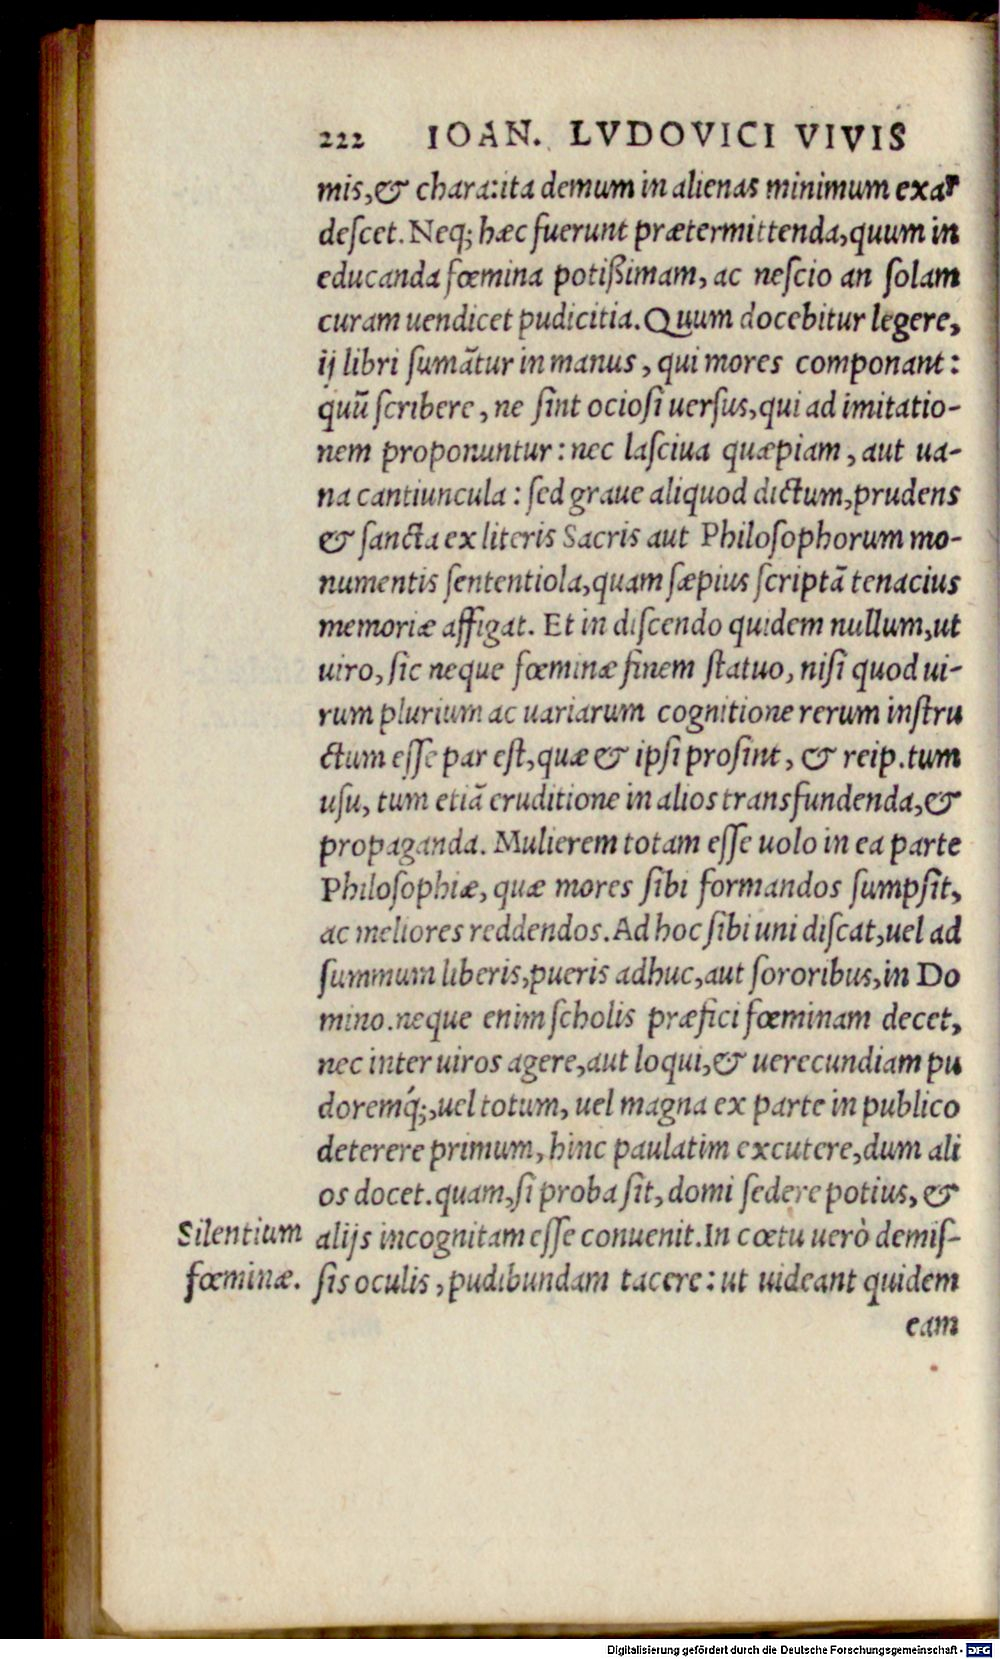 222 IOAN. LVDOVICI VIVIS
mis, & chara: ita demum in alienas minimum exar
deſcet. Neq; hæc fuerunt prætermittenda, quum in
educanda fœmina potiſsimam, ac neſcio an ſolam
curam uendicet pudicitia. Quum docebitur legere,
ij libri ſumãtur in manus, qui mores componant:
quũ ſcribere, ne ſint ocioſi uerſus, qui ad imitatio-
nem proponuntur: nec laſciua quæpiam, aut ua-
na cantiuncula: ſed graue aliquod dictum, prudens
& ſancta ex literis Sacris aut Philoſophorum mo-
numentis ſententiola, quam ſæpius ſcriptã tenacius
memoriæ affigat. Et in diſcendo quidem nullum, ut
uiro, ſic neque fœminæ finem ſtatuo, niſi quod ui-
rum plurium ac uariarum cognitione rerum inſtru
ctum eſſe par eſt, quæ & ipſi proſint, & reip. tum
uſu, tum etiã eruditione in alios transfundenda, &
propaganda. Mulierem totam eſſe uolo in ea parte
Philoſophiæ, quæ mores ſibi formandos ſumpſit,
ac meliores reddendos. Ad hoc ſibi uni diſcat, uel ad
ſummum liberis, pueris adhuc, aut ſororibus, in Do
mino. neque enim ſcholis præfici fœminam decet,
nec inter uiros agere, aut loqui, & uerecundiam pu
doremq́;, uel totum, uel magna ex parte in publico
deterere primum, hinc paulatim excutere, dum ali
os docet. quam, ſi proba ſit, domi ſedere potius, &
Silentium alijs incognitam eſſe conuenit. In cœtu uerò demiſ-
fœminæ. ſis oculis, pudibundam tacere: ut uideant quidem
eam
Digitalisierung gefördert durch die Deutsche Forschungsgemeinschaft - DFG